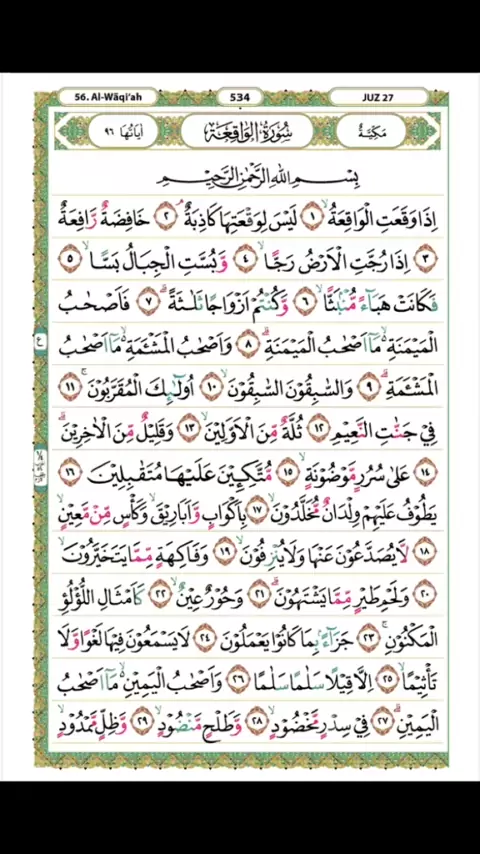 56. Al-Wāqi'ah 534 JUZ 27
مَكِّيَّةٌ سُوْرَةُ الْوَاقِعَةِ اٰيَاتُهَا ٩٦
بِسْمِ اللّٰهِ الرَّحْمٰنِ الرَّحِيْمِ
اِذَا وَقَعَتِ الْوَاقِعَةُۙ ١ لَيْسَ لِوَقْعَتِهَا كَاذِبَةٌۘ ٢ خَافِضَةٌ رَّافِعَةٌ
٣ اِذَا رُجَّتِ الْاَرْضُ رَجًّاۙ ٤ وَّبُسَّتِ الْجِبَالُ بَسًّاۙ ٥
فَكَانَتْ هَبَاۤءً مُّنْۢبَثًّاۙ ٦ وَّكُنْتُمْ اَزْوَاجًا ثَلٰثَةًۗ ٧ فَاَصْحٰبُ
الْمَيْمَنَةِ ەۙ مَآ اَصْحٰبُ الْمَيْمَنَةِۗ ٨ وَاَصْحٰبُ الْمَشْـَٔمَةِ ەۙ مَآ اَصْحٰبُ
الْمَشْـَٔمَةِۗ ٩ وَالسّٰبِقُوْنَ السّٰبِقُوْنَۙ ١٠ اُولٰۤىِٕكَ الْمُقَرَّبُوْنَۚ ١١
فِيْ جَنّٰتِ النَّعِيْمِ ١٢ ثُلَّةٌ مِّنَ الْاَوَّلِيْنَۙ ١٣ وَقَلِيْلٌ مِّنَ الْاٰخِرِيْنَۗ
١٤ عَلٰى سُرُرٍ مَّوْضُوْنَةٍۙ ١٥ مُّتَّكِـِٕيْنَ عَلَيْهَا مُتَقٰبِلِيْنَ ١٦
يَطُوْفُ عَلَيْهِمْ وِلْدَانٌ مُّخَلَّدُوْنَۙ ١٧ بِاَكْوَابٍ وَّاَبَارِيْقَۙ وَكَأْسٍ مِّنْ مَّعِيْنٍۙ
١٨ لَّا يُصَدَّعُوْنَ عَنْهَا وَلَا يُنْزِفُوْنَۙ ١٩ وَفَاكِهَةٍ مِّمَّا يَتَخَيَّرُوْنَۙ
٢٠ وَلَحْمِ طَيْرٍ مِّمَّا يَشْتَهُوْنَۗ ٢١ وَحُوْرٌ عِيْنٌۙ ٢٢ كَاَمْثَالِ اللُّؤْلُؤِ
الْمَكْنُوْنِۚ ٢٣ جَزَاۤءًۢ بِمَا كَانُوْا يَعْمَلُوْنَ ٢٤ لَا يَسْمَعُوْنَ فِيْهَا لَغْوًا وَّلَا
تَأْثِيْمًاۙ ٢٥ اِلَّا قِيْلًا سَلٰمًا سَلٰمًا ٢٦ وَاَصْحٰبُ الْيَمِيْنِ ەۙ مَآ اَصْحٰبُ
الْيَمِيْنِۗ ٢٧ فِيْ سِدْرٍ مَّخْضُوْدٍۙ ٢٨ وَّطَلْحٍ مَّنْضُوْدٍۙ ٢٩ وَّظِلٍّ مَّمْدُوْدٍۙ